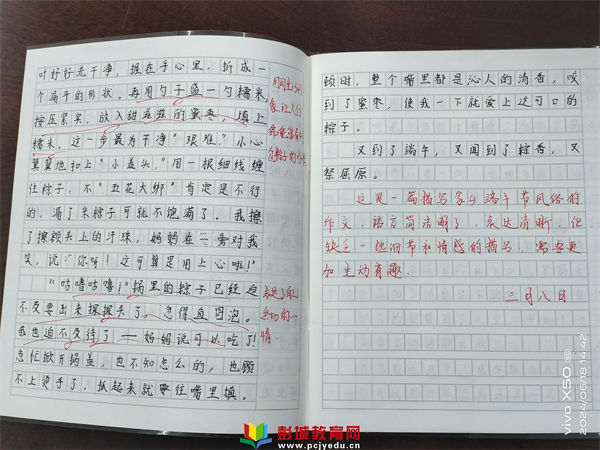 叶好好洗干净,握在手心里。折成一
个漏斗的形状。再用勺子盛一勺糯米,
按压紧实,放入甜滋滋的蜜枣,填上
糯米。这一步最为干净"艰难",小心
翼翼地扣上"小盖头",用一根细线缠
住粽子,不"五花大绑"肯定是不行
的,漏了米粽子可就不饱满了。我擦
了擦额头上的汗珠,妈妈在一旁对我
笑,说:"你呀!这可算是用上心啦!"
"咕噜咕噜!"锅里的粽子已经迫
不及要出来探探头了,急得直冒泡。
我也迫不及待了——妈妈说可以吃了!
急忙掀开锅盖,也不知怎么的,也顾
不上烫手了,抓起来就往嘴里填。
顿时,整个嘴里都是沁人的清香,咬
到了蜜枣,使我一下就爱上这可口的
粽子。
又到了端午,又闻到了粽香,又
祭屈原。
这是一篇描写家乡端午节风俗的
作文,语言简洁明了,表达清晰,但
缺乏一些细节和情感的描写,需要更
加生动有趣。
三月八日
vivo X50
2024/06/18 14:42
彭城教育网
www.pcjyedu.cn